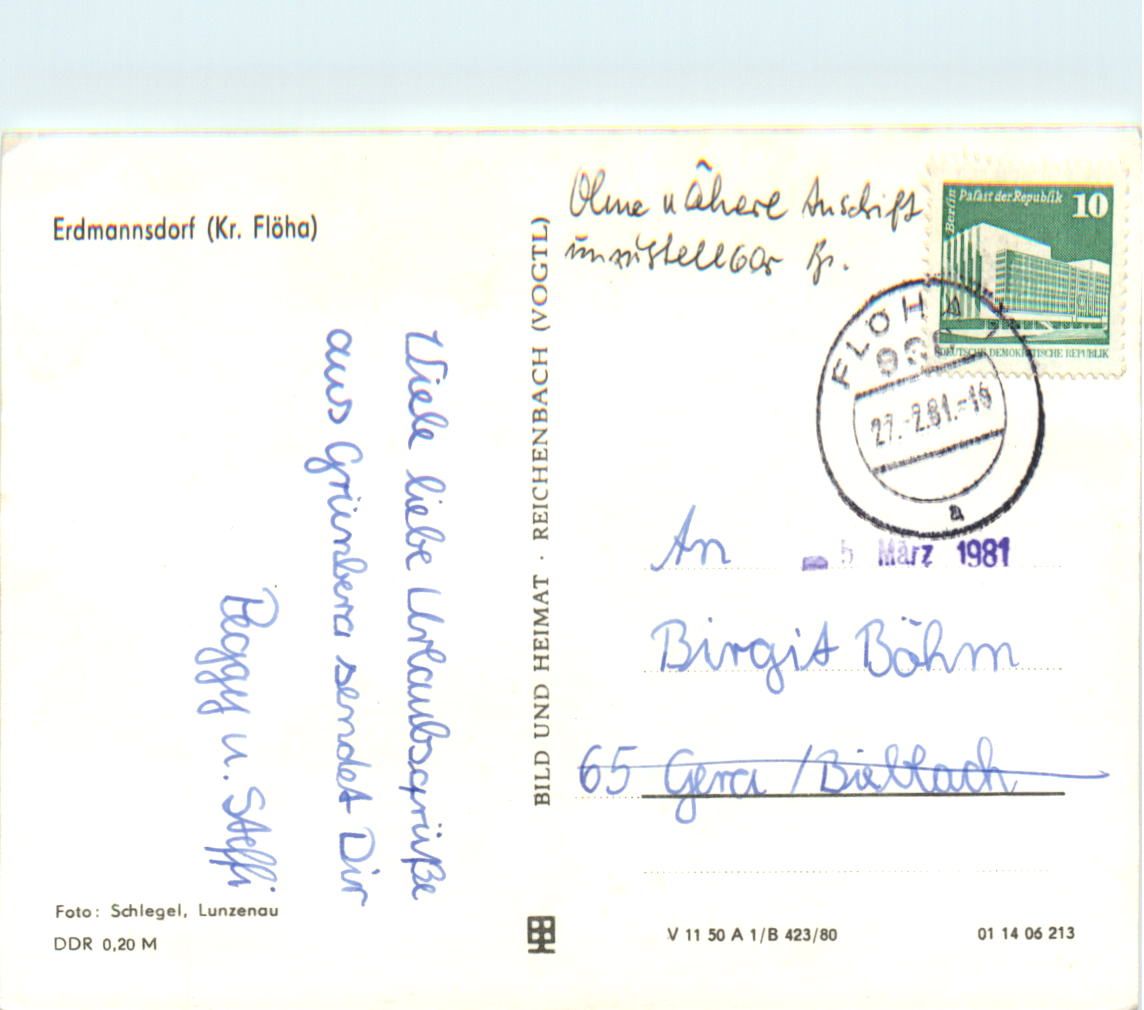 Erdmannsdorf (Kr. Flöha)
Viele liebe Urlaubsgrüße
aus Grünberg sendet Dir
Peggy u. Steffi
Foto: Schlegel, Lunzenau
DDR 0,20 M
BILD UND HEIMAT · REICHENBACH (VOGTL)
Ohne nähere Anschrift
unzustellbar
Berlin
Palast der Republik
10
DEUTSCHE DEMOKRATISCHE REPUBLIK
FLÖHA
27.-2.81.-16
a
5 März 1981
An
Birgit Böhm
65 Gera/Bieblach
V 11 50 A 1/B 423/80
01 14 06 213